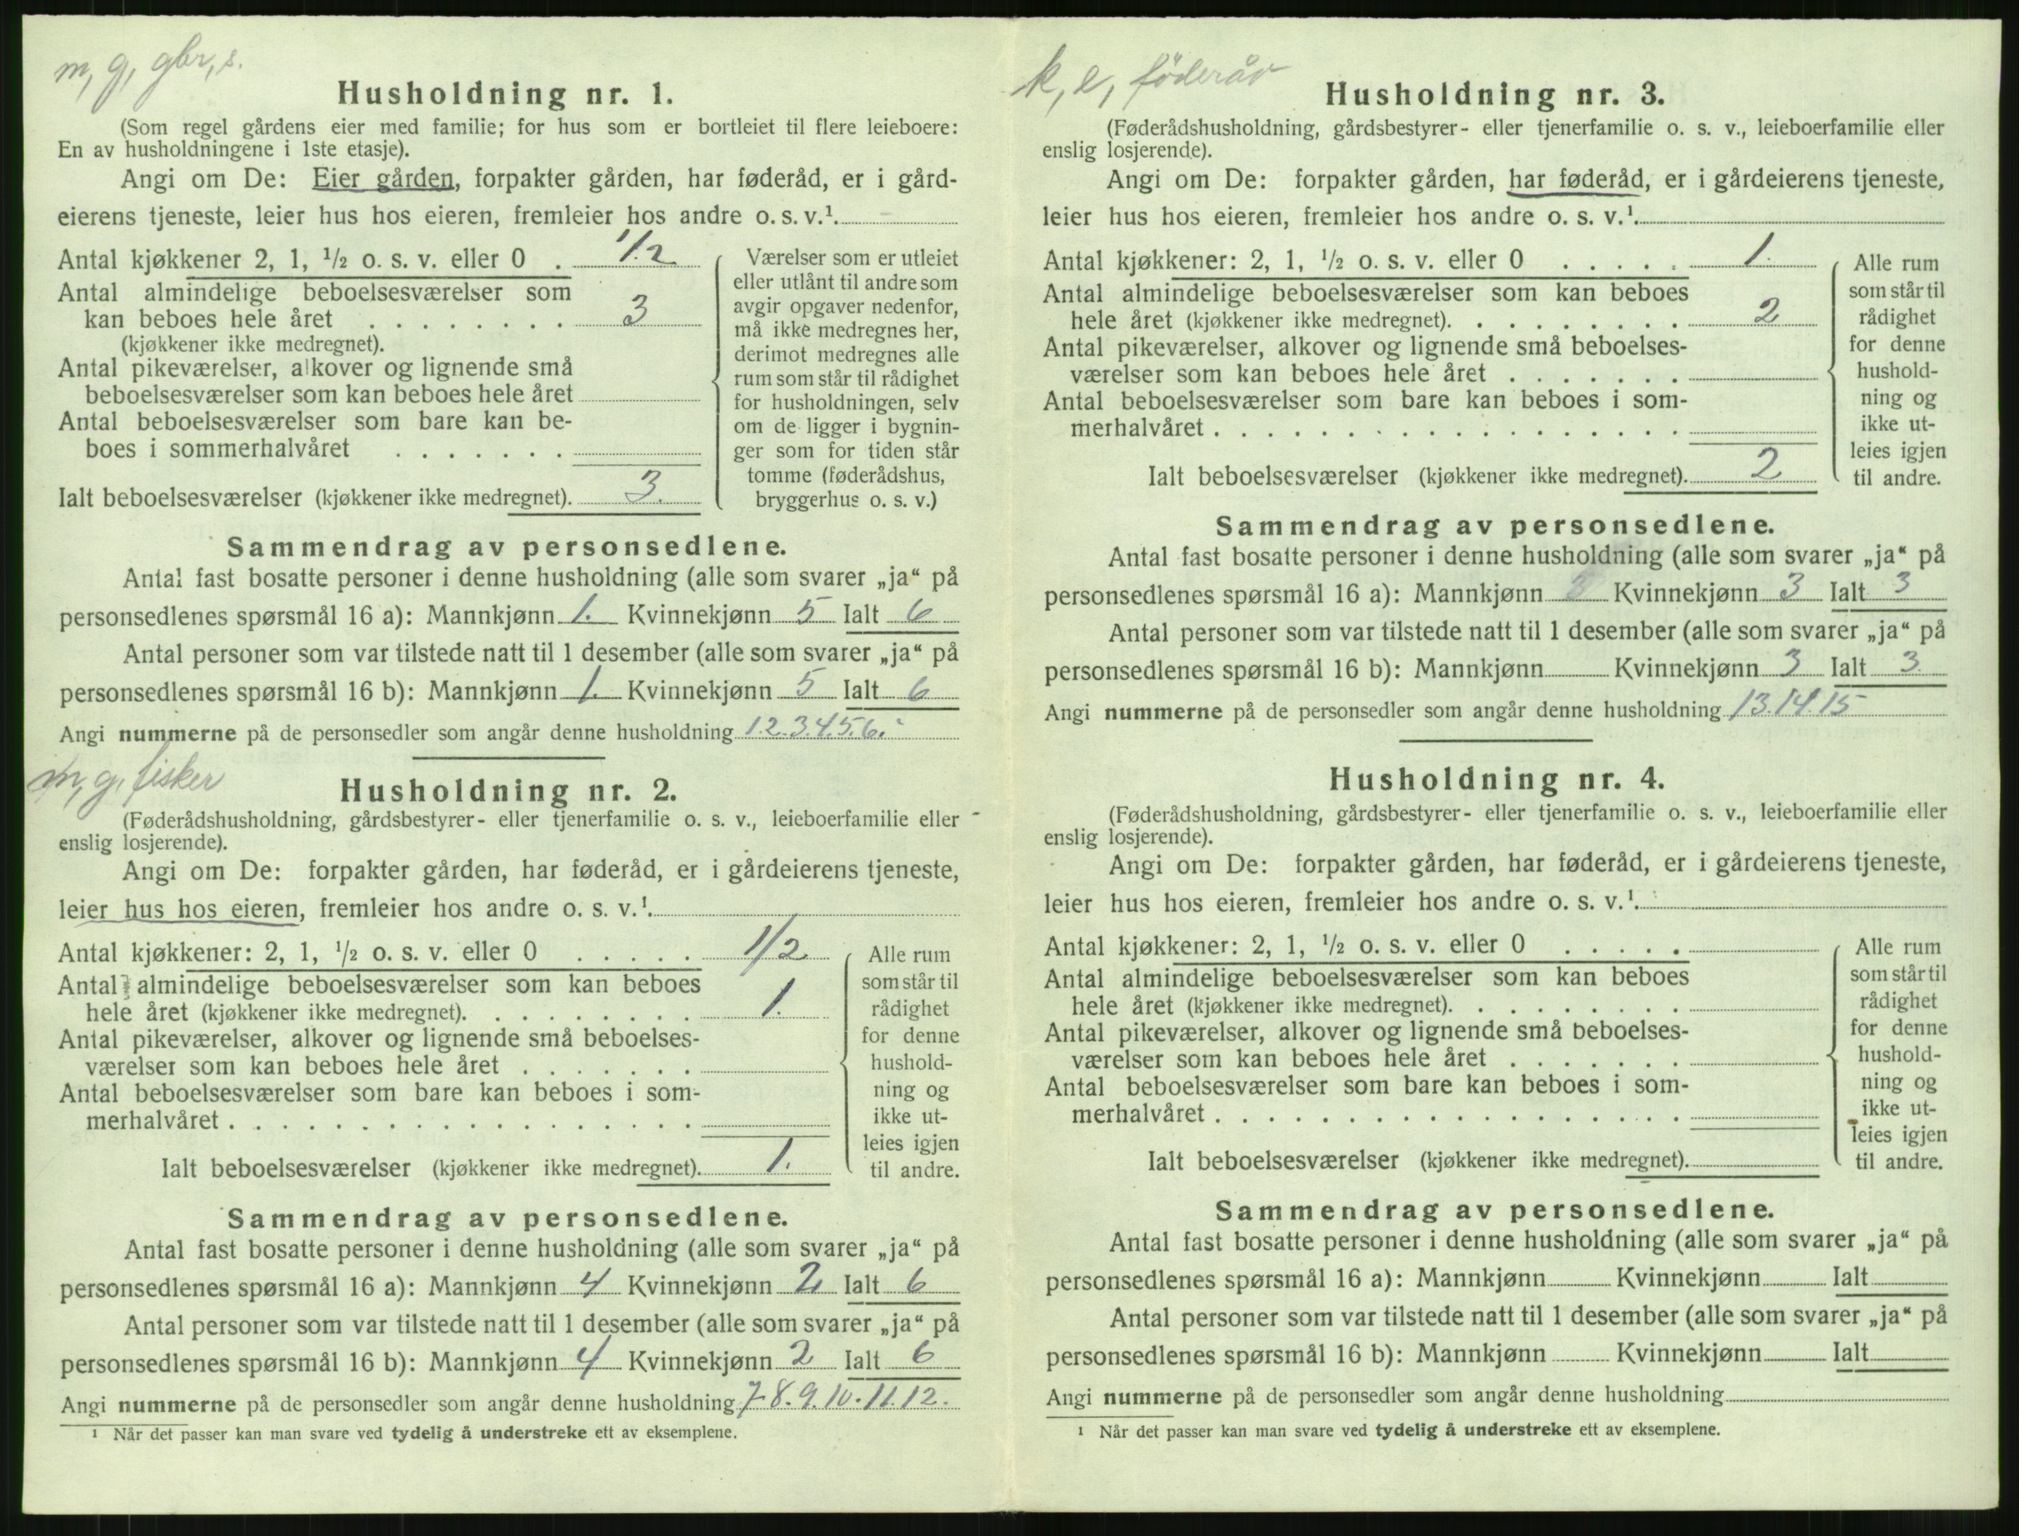 m, g, gbr, s.
Husholdning nr. 1.
(Som regel gårdens eier med familie; for hus som er bortleiet til flere leieboere:
En av husholdningene i 1ste etasje).
Angi om De: Eier gården, forpakter gården, har føderåd, er i gård-
eierens tjeneste, leier hus hos eieren, fremleier hos andre o. s. v.¹.
Antal kjøkkener 2, 1, ½ o. s. v. eller 0 . 1/2
Antal almindelige beboelsesværelser som
kan beboes hele året . . . . . . . . 3
(kjøkkener ikke medregnet).
Antal pikeværelser, alkover og lignende små
beboelsesværelser som kan beboes hele året
Antal beboelsesværelser som bare kan be-
boes i sommerhalvåret . . . . . . .
Ialt beboelsesværelser (kjøkkener ikke medregnet). 3.
Værelser som er utleiet
eller utlånt til andre som
avgir opgaver nedenfor,
må ikke medregnes her,
derimot medregnes alle
rum som står til rådighet
for husholdningen, selv
om de ligger i bygnin-
ger som for tiden står
tomme (føderådshus,
bryggerhus o. s. v.)
Sammendrag av personsedlene.
Antal fast bosatte personer i denne husholdning (alle som svarer „ja“ på
personsedlenes spørsmål 16 a): Mannkjønn 1. Kvinnekjønn 5 Ialt 6
Antal personer som var tilstede natt til 1 desember (alle som svarer „ja“ på
personsedlenes spørsmål 16 b): Mannkjønn 1. Kvinnekjønn 5 Ialt 6
Angi nummerne på de personsedler som angår denne husholdning 1.2.3.4.5.6.
m, g, fisker
Husholdning nr. 2.
(Føderådshusholdning, gårdsbestyrer- eller tjenerfamilie o. s. v., leieboerfamilie eller
enslig losjerende).
Angi om De: forpakter gården, har føderåd, er i gårdeierens tjeneste,
leier hus hos eieren, fremleier hos andre o. s. v.¹.
Antal kjøkkener: 2, 1, ½ o. s. v. eller 0 . . . . . 1/2
Antal almindelige beboelsesværelser som kan beboes
hele året (kjøkkener ikke medregnet). . . . . . . . . 1.
Antal pikeværelser, alkover og lignende små beboelses-
værelser som kan beboes hele året . . . . . . .
Antal beboelsesværelser som bare kan beboes i som-
merhalvåret . . . . . . . . . . . . . . . . . .
Ialt beboelsesværelser (kjøkkener ikke medregnet). 1.
Alle rum
som står til
rådighet
for denne
hushold-
ning og
ikke ut-
leies igjen
til andre.
Sammendrag av personsedlene.
Antal fast bosatte personer i denne husholdning (alle som svarer „ja“ på
personsedlenes spørsmål 16 a): Mannkjønn 4 Kvinnekjønn 2 Ialt 6
Antal personer som var tilstede natt til 1 desember (alle som svarer „ja“ på
personsedlenes spørsmål 16 b): Mannkjønn 4 Kvinnekjønn 2 Ialt 6
Angi nummerne på de personsedler som angår denne husholdning 7-8.9.10.11.12.
¹ Når det passer kan man svare ved tydelig å understreke ett av eksemplene.
k, e, føderåd
Husholdning nr. 3.
(Føderådshusholdning, gårdsbestyrer- eller tjenerfamilie o. s. v., leieboerfamilie eller
enslig losjerende).
Angi om De: forpakter gården, har føderåd, er i gårdeierens tjeneste,
leier hus hos eieren, fremleier hos andre o. s. v.¹.
Antal kjøkkener: 2, 1, ½ o. s. v. eller 0 . . . . . 1.
Antal almindelige beboelsesværelser som kan beboes
hele året (kjøkkener ikke medregnet). . . . . . . . . 2
Antal pikeværelser, alkover og lignende små beboelses-
værelser som kan beboes hele året . . . . . . .
Antal beboelsesværelser som bare kan beboes i som-
merhalvåret . . . . . . . . . . . . . . . . . .
Ialt beboelsesværelser (kjøkkener ikke medregnet). 2
Alle rum
som står til
rådighet
for denne
hushold-
ning og
ikke ut-
leies igjen
til andre.
Sammendrag av personsedlene.
Antal fast bosatte personer i denne husholdning (alle som svarer „ja“ på
personsedlenes spørsmål 16 a): Mannkjønn Kvinnekjønn 3 Ialt 3
Antal personer som var tilstede natt til 1 desember (alle som svarer „ja“ på
personsedlenes spørsmål 16 b): Mannkjønn Kvinnekjønn 3 Ialt 3.
Angi nummerne på de personsedler som angår denne husholdning 13.14.15
Husholdning nr. 4.
(Føderådshusholdning, gårdsbestyrer- eller tjenerfamilie o. s. v., leieboerfamilie eller
enslig losjerende).
Angi om De: forpakter gården, har føderåd, er i gårdeierens tjeneste,
leier hus hos eieren, fremleier hos andre o. s. v.¹.
Antal kjøkkener: 2, 1, ½ o. s. v. eller 0 . . . . .
Antal almindelige beboelsesværelser som kan beboes
hele året (kjøkkener ikke medregnet). . . . . . . . .
Antal pikeværelser, alkover og lignende små beboelses-
værelser som kan beboes hele året . . . . . . .
Antal beboelsesværelser som bare kan beboes i som-
merhalvåret . . . . . . . . . . . . . . . . . .
Ialt beboelsesværelser (kjøkkener ikke medregnet).
Alle rum
som står til
rådighet
for denne
hushold-
ning og
ikke ut-
leies igjen
til andre.
Sammendrag av personsedlene.
Antal fast bosatte personer i denne husholdning (alle som svarer „ja“ på
personsedlenes spørsmål 16 a): Mannkjønn Kvinnekjønn Ialt
Antal personer som var tilstede natt til 1 desember (alle som svarer „ja“ på
personsedlenes spørsmål 16 b): Mannkjønn Kvinnekjønn Ialt
Angi nummerne på de personsedler som angår denne husholdning
¹ Når det passer kan man svare ved tydelig å understreke ett av eksemplene.